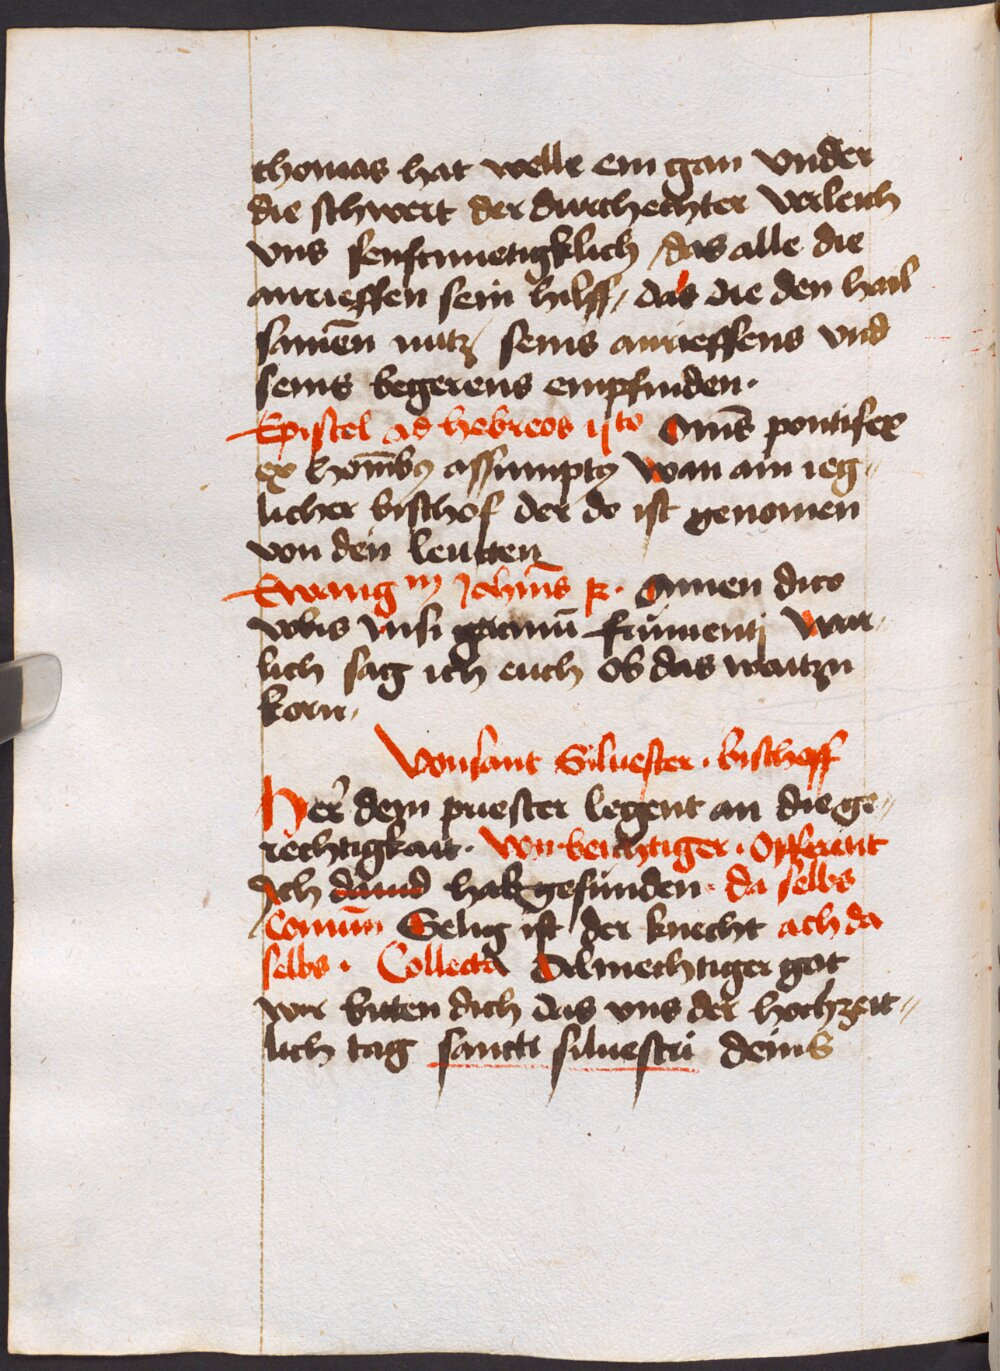 thomas hat welle ein gan vnder
die schwert der durchechter verleich
vns senftmuetigklich / das alle die
anrieffen sein hilff / das die den hail
samen̄ nutz seins anrieffens vnd
seins begerens empfinden ·
Epistel ad hebreos Om̄s pontifex
ex hom̄ibꝯ assumptꝯ wan ain ieg〃
licher bischof der do ist genomen
von den leutten
Ewang Joh̄nis Amen dico
vobis nisi granū frumenti war〃
lich sag ich euch ob das waitzn
korn ·
Von sant Siluester · bischoff
Her dein priester legent an die ge〃
rechtigkait · von beichtiger · Offerent
Ich dauid hab gefunden · da selbs
Com̄un Selig ist der knecht ach da
selbs · Collecta Almechtiger got
wir bitten dich das vns der hochzeit〃
lich tag sancti siluestri deins